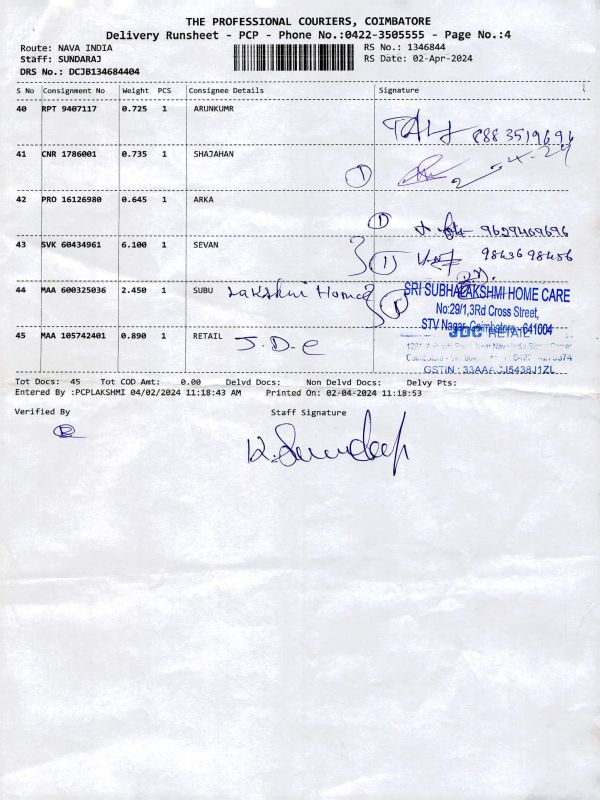 THE PROFESSIONAL COURIERS, COIMBATORE
Delivery Runsheet - PCP - Phone No.:0422-3505555 - Page No.:4
Route: NAVA INDIA
Staff: SUNDARAJ
DRS No.: DCJB134684404
RS No.: 1346844
RS Date: 02-Apr-2024
S No Consignment No Weight PCS Consignee Details Signature
40 RPT 9407117 0.725 1 ARUNKUMR
41 CNR 1786001 0.735 1 SHAJAHAN
1
42 PRO 16126980 0.645 1 ARKA
1 9629469696
43 SVK 60434961 6.100 1 SEVAN
1 9843698456
44 MAA 600325036 2.450 1 SUBU Lakshmi Home
SRI SUBHALAKSHMI HOME CARE
No:29/1,3Rd Cross Street,
STV Nagar, Coimbatore - 641004
45 MAA 105742401 0.890 1 RETAIL J.D.C
JDC RETAIL
GSTIN :
Tot Docs: 45 Tot COD Amt: 0.00 Delvd Docs: Non Delvd Docs: Delvy Pts:
Entered By :PCPLAKSHMI 04/02/2024 11:18:43 AM Printed On: 02-04-2024 11:18:53
Verified By Staff Signature